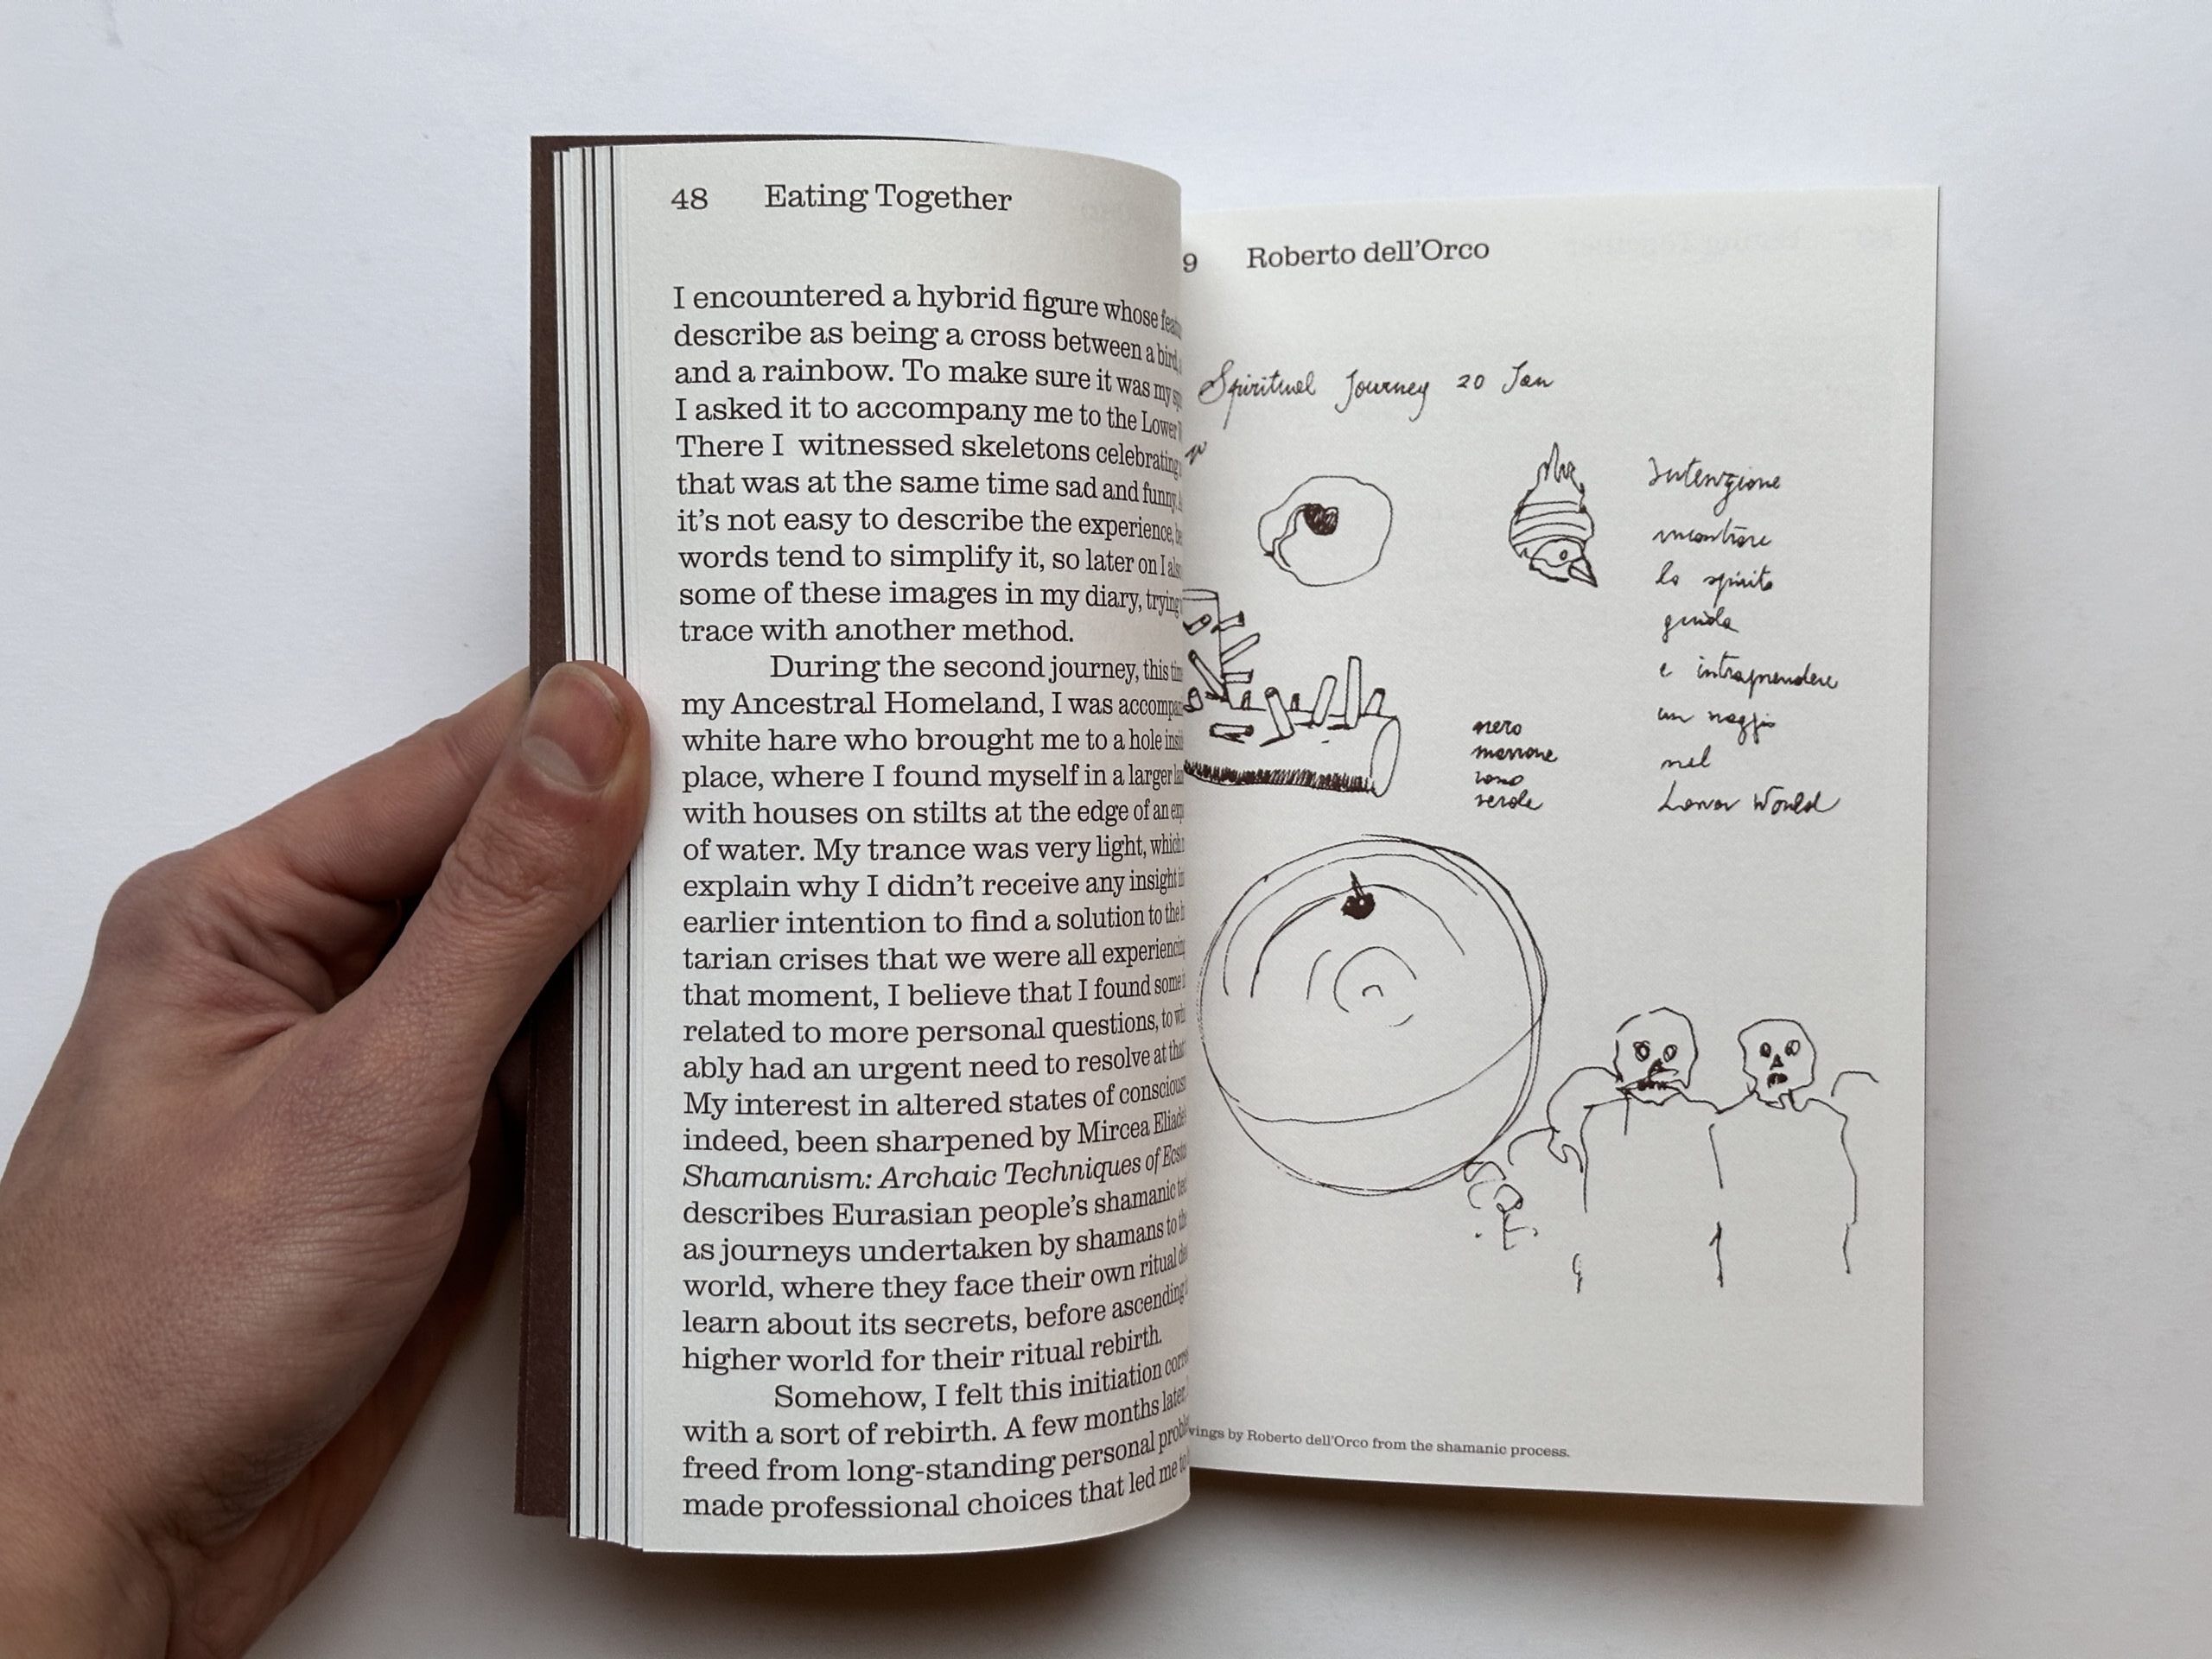 48 Eating Together
I encountered a hybrid figure whose
describe as being a cross between a bird,
and a rainbow. To make sure it was my
I asked it to accompany me to the Lower
There I witnessed skeletons celebrating
that was at the same time sad and funny.
it's not easy to describe the experience,
words tend to simplify it, so later on I
some of these images in my diary, trying
trace with another method.
During the second journey, this
my Ancestral Homeland, I was
white hare who brought me to a hole
place, where I found myself in a larger
with houses on stilts at the edge of an
of water. My trance was very light,
explain why I didn't receive any insight
earlier intention to find a solution to the
tarian crises that we were all
that moment, I believe that I found some
related to more personal questions, to
ably had an urgent need to resolve at
My interest in altered states of
indeed, been sharpened by Mircea
Shamanism: Archaic Techniques of
describes Eurasian people's shamanic
as journeys undertaken by shamans to
world, where they face their own ritual
learn about its secrets, before ascending
higher world for their ritual rebirth.
Somehow, I felt this initiation
with a sort of rebirth. A few months later,
freed from long-standing personal
made professional choices that led me to
9 Roberto dell'Orco
Spiritual Journey 20 Jan
Intenzione
incontrare
lo spirito
guida
e intraprendere
un viaggio
nel
Lower World
nero
marrone
verde
by Roberto dell'Orco from the shamanic process.